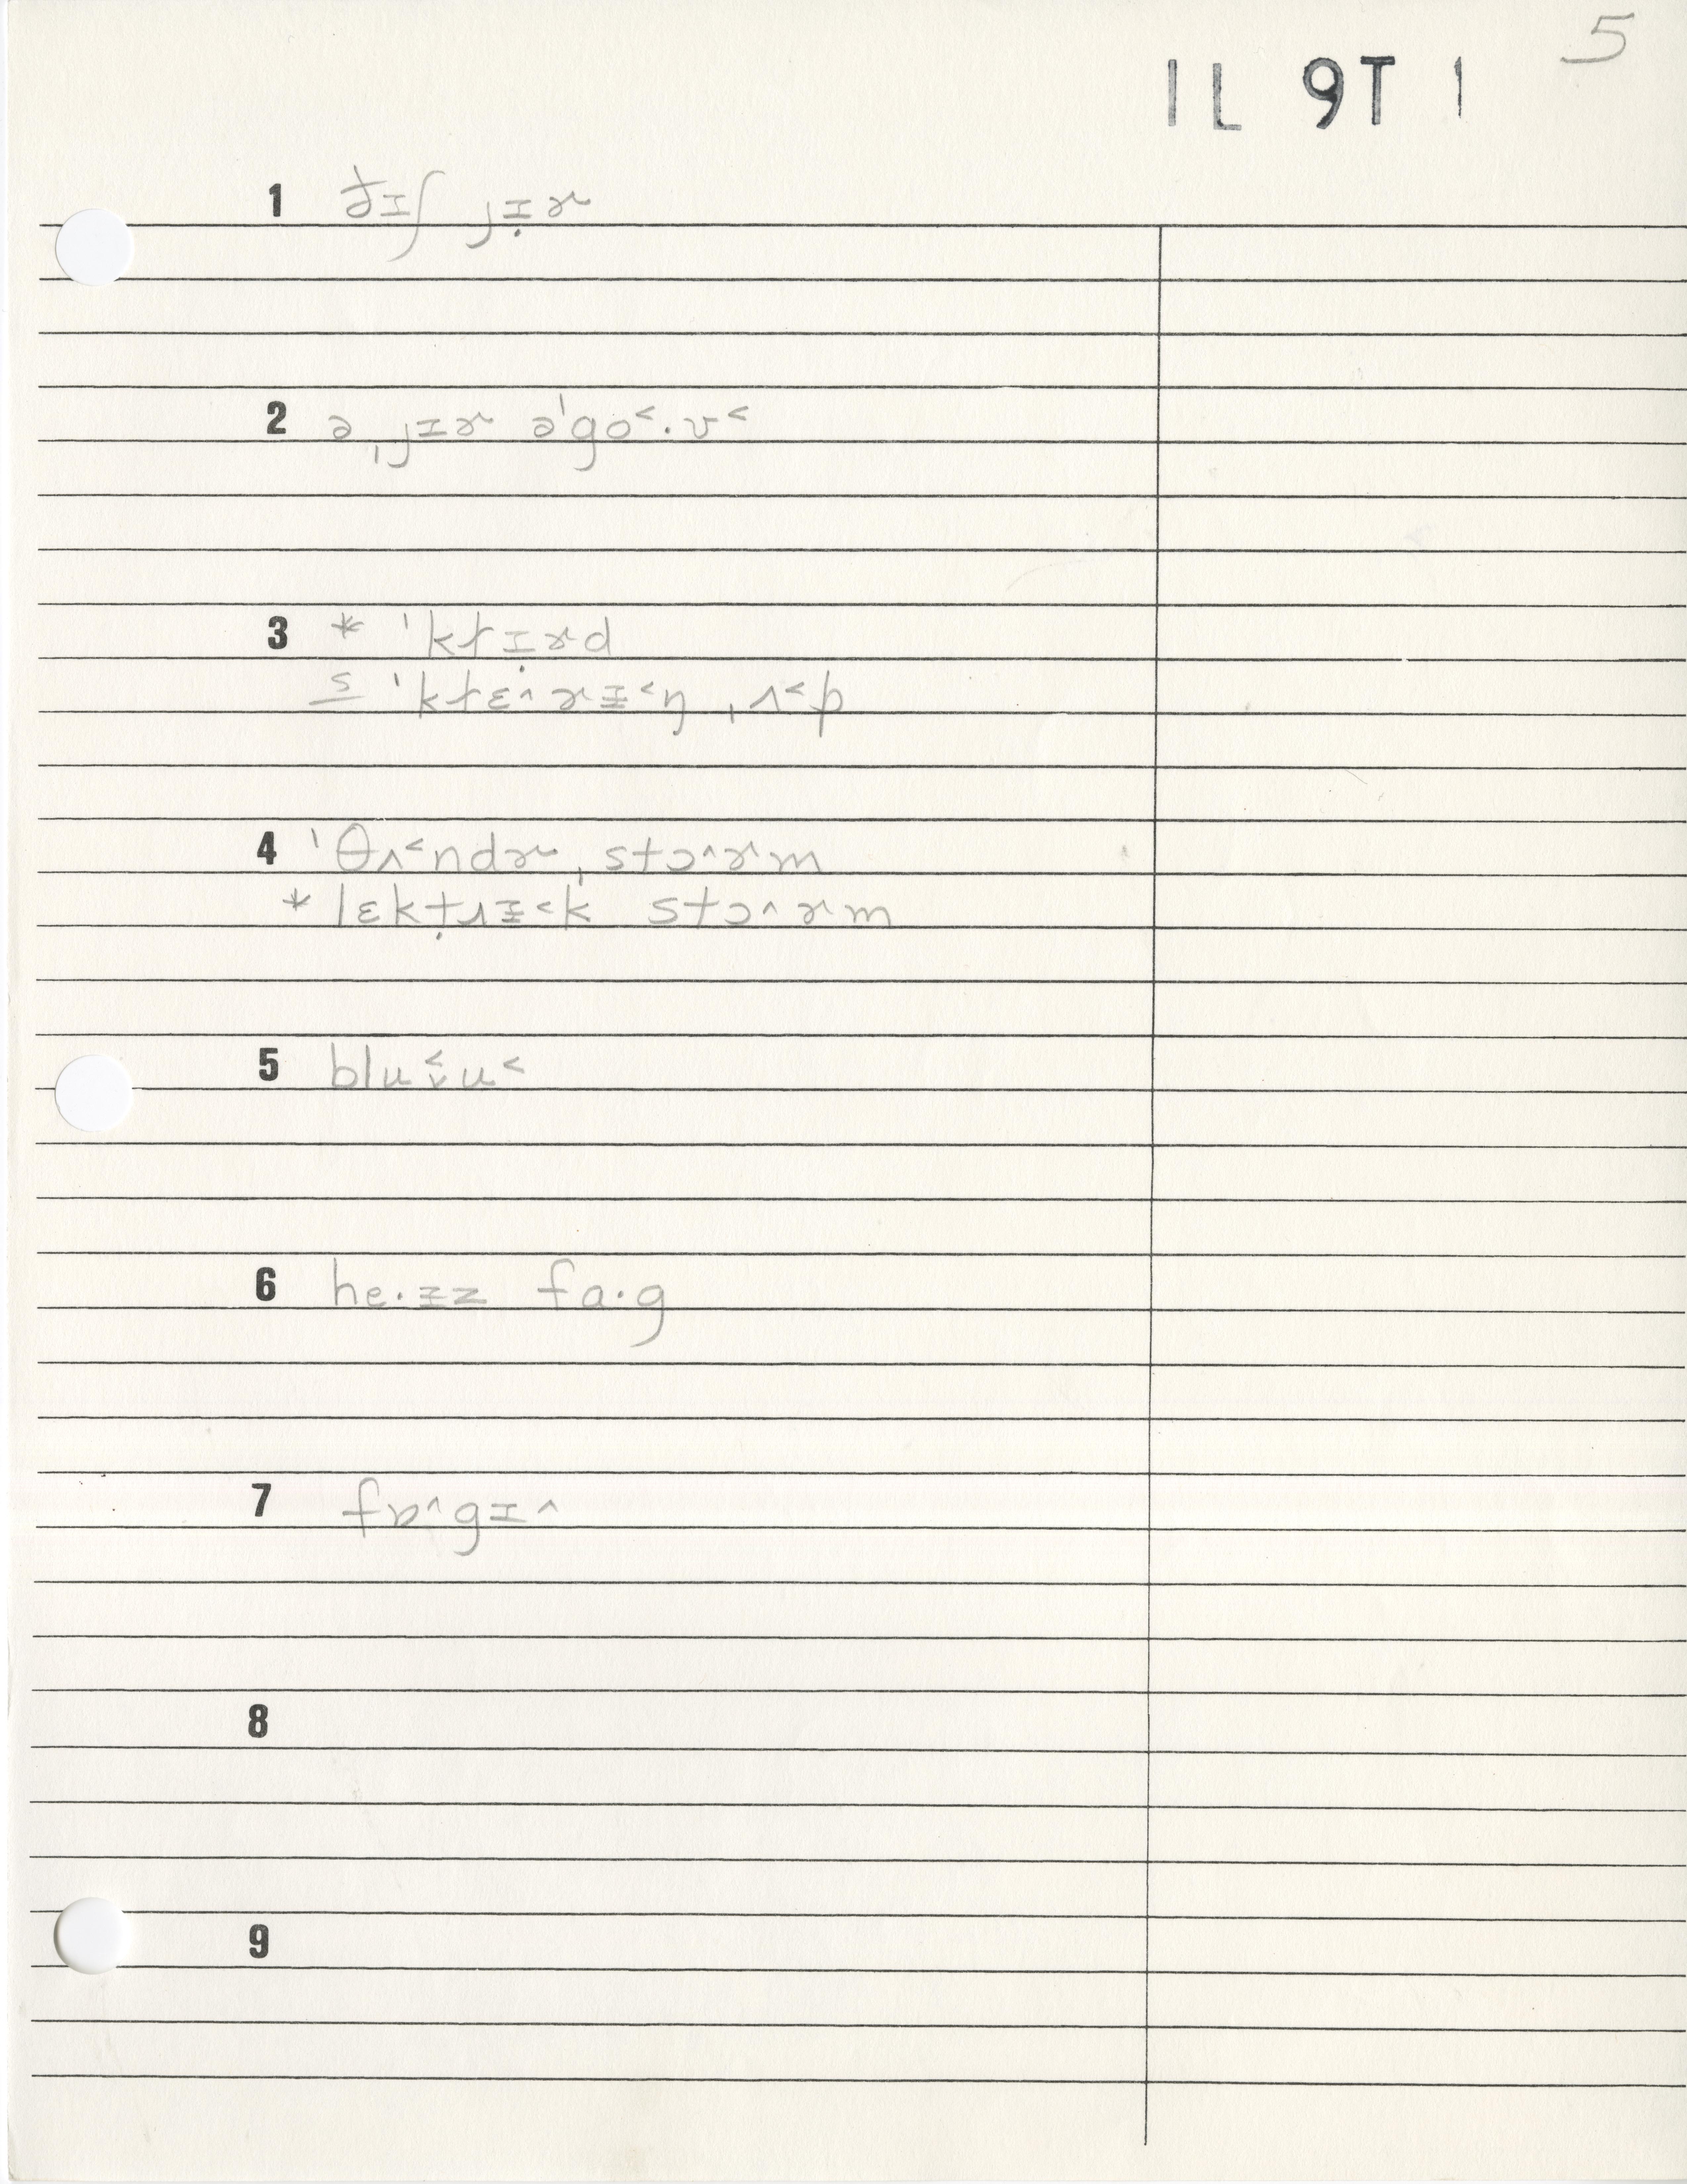 5
IL 9T 1
1 ðɪʃ jɪ̣ɚ
2 ə ˌjɪɚ əˈgo˂·ʊ˂
3 * ˈkɫɪ̣ɚd
s ˈkɫɛ˄ɚɪ˂ŋ ˌʌ˂p
4 ˈθʌ˂ndɚ ˌstɔ˄ɚm
* lɛkṭɹɪ˂k stɔ˄ɚm
5 blu˂˅u˂
6 he·ɪz fɑ·g
7 fɒ˄gɪ˄
8
9